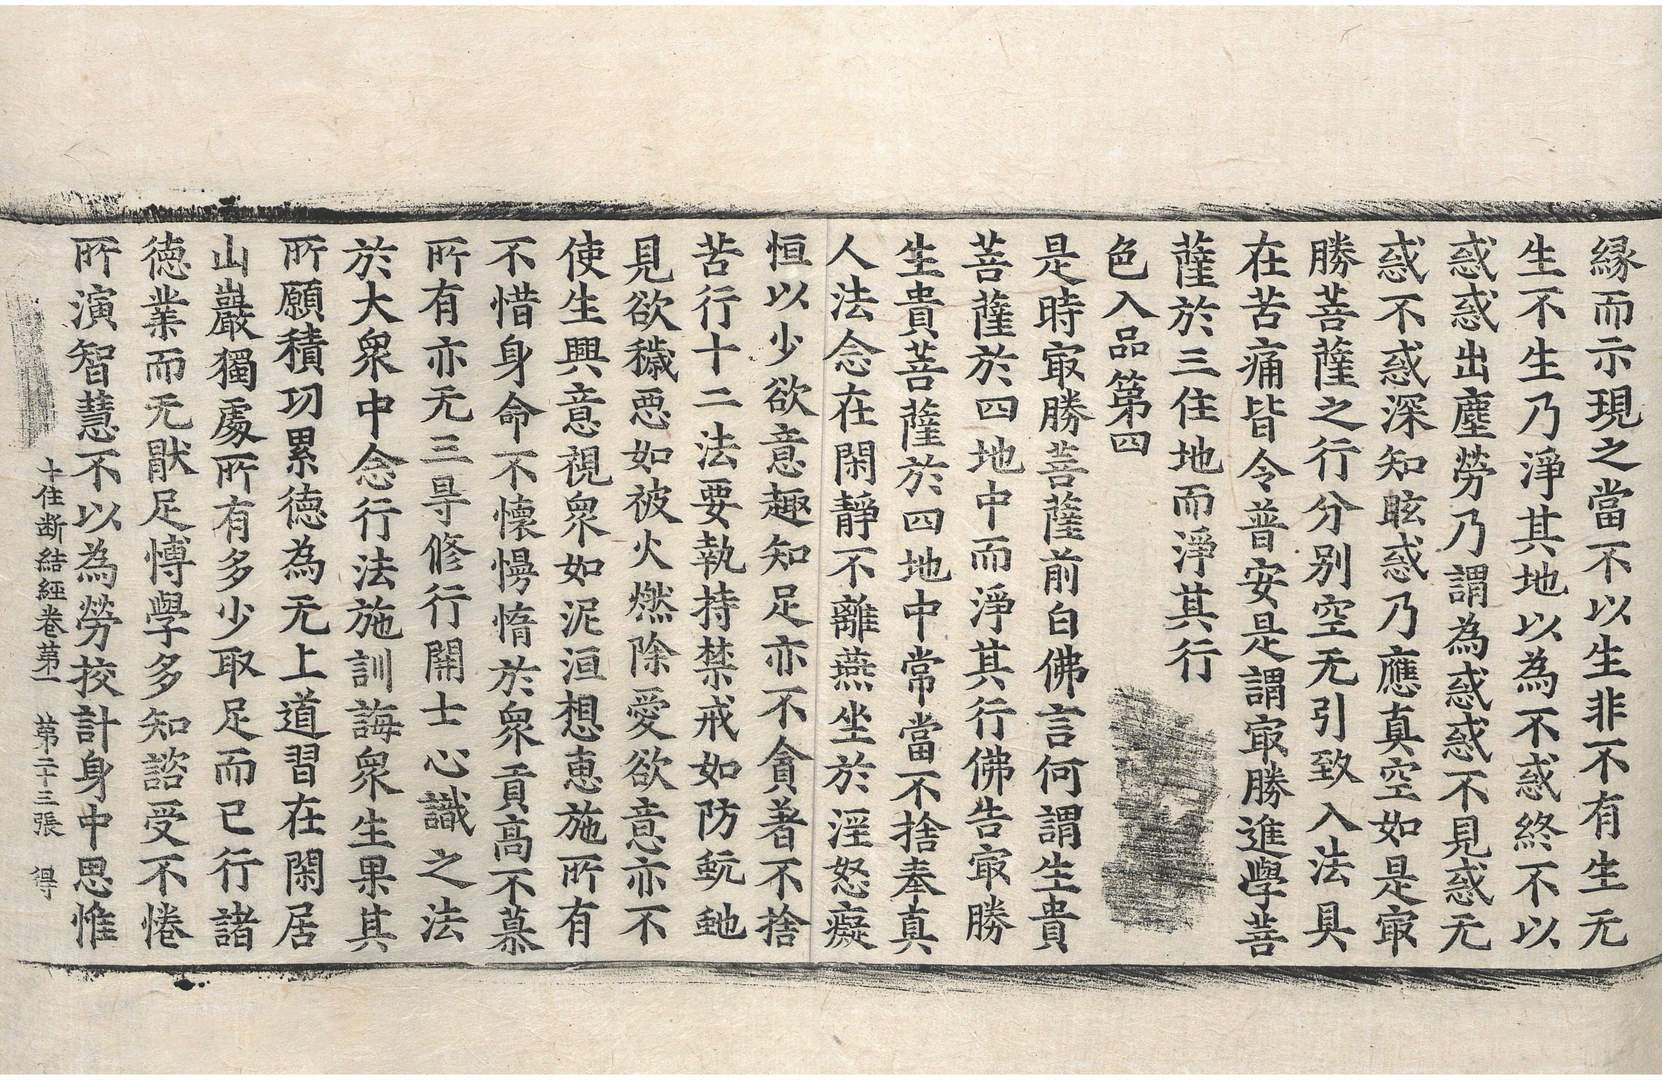 縁而示現之當不以生非不有生无
生不生乃淨其地以為不惑終不以
惑惑出塵勞乃謂為惑惑不見惑无
惑不惑深知眩惑乃應真空如是㝡
勝菩薩之行分别空无引致入法具
在苦痛皆令普安是謂㝡勝進學菩
薩於三住地而淨其行
色入品第四
是時㝡勝菩薩前白佛言何謂生貴
菩薩於四地中而淨其行佛告㝡勝
生貴菩薩於四地中常當不捨奉真
人法念在閑靜不離燕坐於淫怒癡
恒以少欲意趣知足亦不貪著不捨
苦行十二法要執持禁戒如防蚖虵
見欲穢惡如被火燃除愛欲意亦不
使生興意視眾如泥洹想惠施所有
不惜身命不懷慢惰於眾貢高不慕
所有亦无三㝵修行開士心識之法
於大眾中念行法施訓誨眾生果其
所願積功累德為无上道習在閑居
山巖獨處所有多少取足而已行諸
德業而无猒足博學多知諮受不惓
所演智慧不以為勞挍計身中思惟
十住断結經卷第一 第二十三張 得